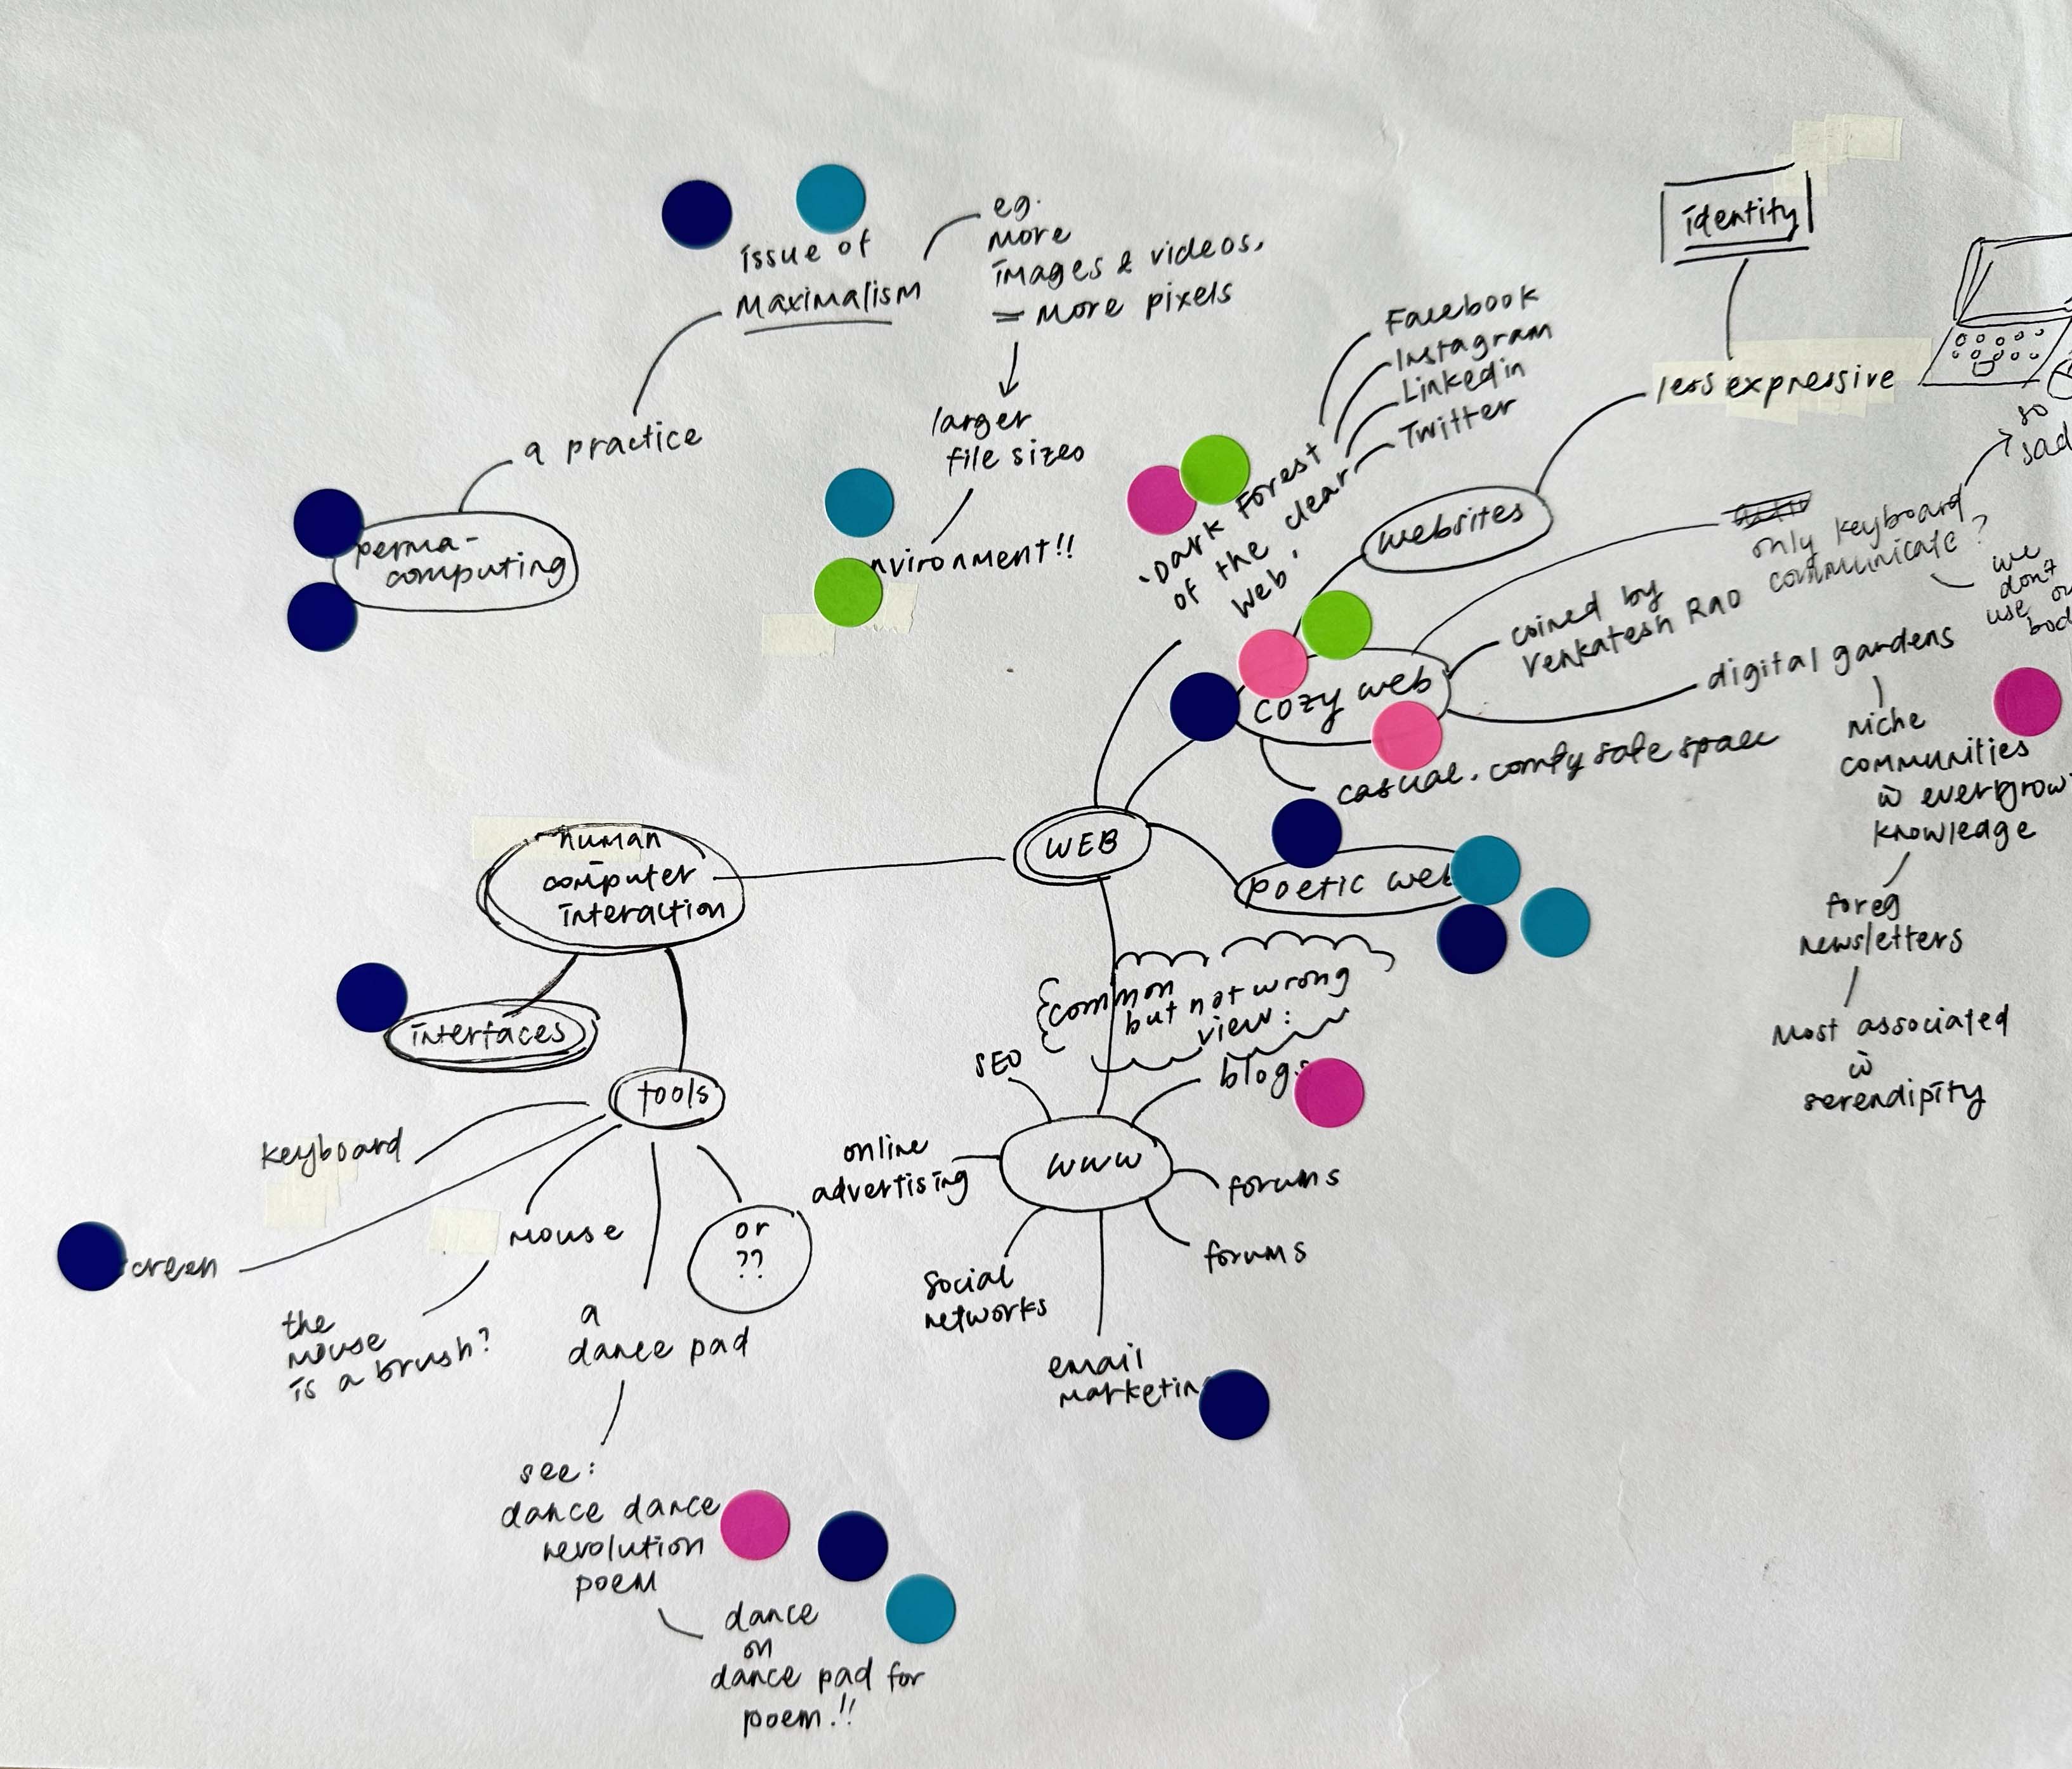 issue of
maximalism
eg.
more
images & videos,
= more pixels
larger
file sizes
nvironment!!
a practice
perma-
computing
identity
less expressive
websites
Facebook
Instagram
Linkedin
Twitter
'Dark Forest
of the clear
web'
so
sad
only keyboard
communicate?
we
don't
use
coined by
Venkatesh Rao
cozy web
digital gardens
niche
communities
w̄ evergrow
knowledge
newsletters
most associated
w̄
serendipity
casual, comfy safe space
WEB
poetic web
human
computer
interaction
interfaces
tools
keyboard
creen
mouse
the
mouse
is a brush?
a
dance pad
or
??
see:
dance dance
revolution
poem
dance
on
dance pad for
poem.!!
common
but not wrong
view:
SEO
blogs
online
advertising
www
forums
forums
social
networks
email
marketin